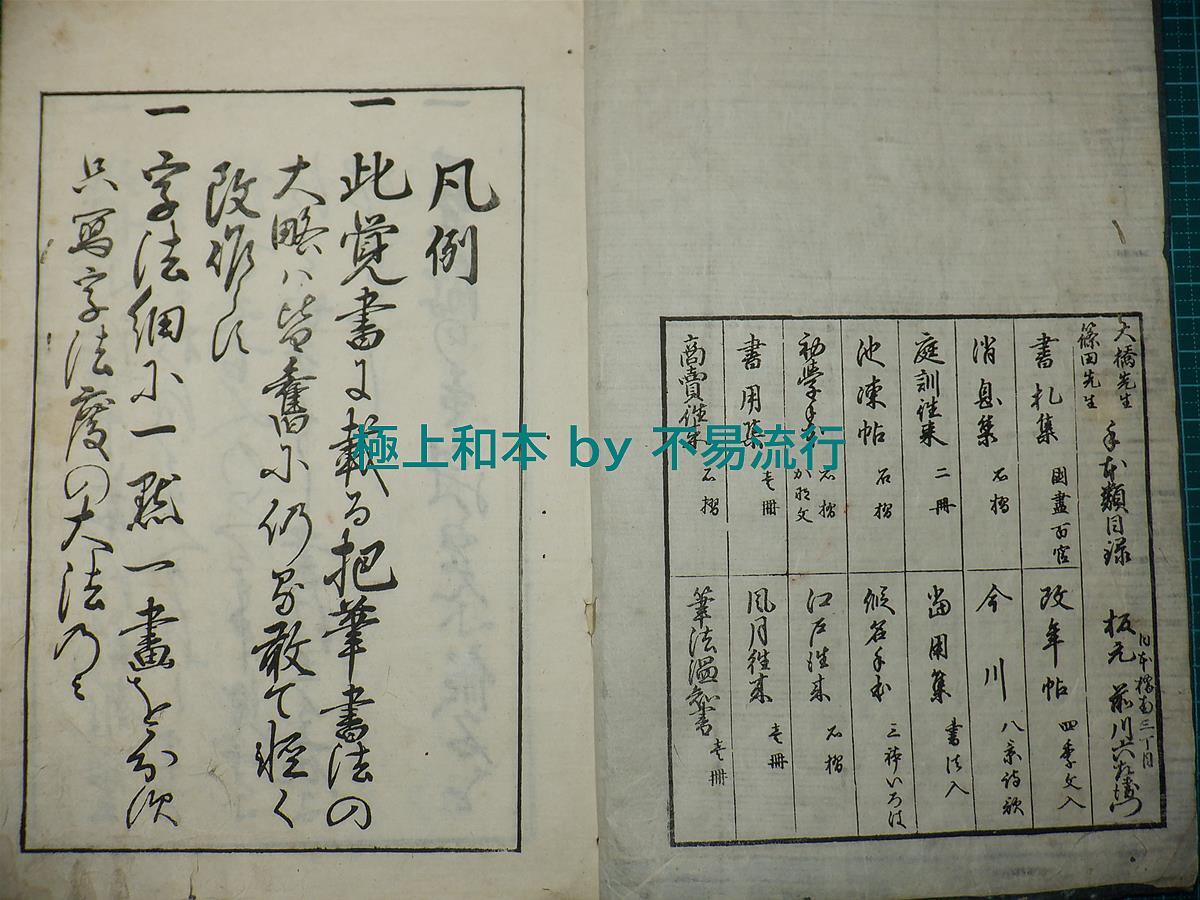 大橋先生
篠田先生
手本類目録
板元
日本橋南三丁目
前川六左衛門
書札集
図畫百官
消息集
石摺
庭訓往来
二冊
池凍帖
石摺
初学手本
石摺
書用集
壱冊
商賣往来
石摺
改年帖
四季文入
今川
八景詩歌
當用集
書法入
仮名手本
三躰いろは
江戸往来
石摺
風月往来
壱冊
筆法温知書
壱冊
凡例
一此覚書に載る把筆書法の
大略ハ皆舊に仍る敢て軽く
改作らに
一字法細に一點一畫を分次
只寫字法度の大法のミ
極上和本 by 不易流行